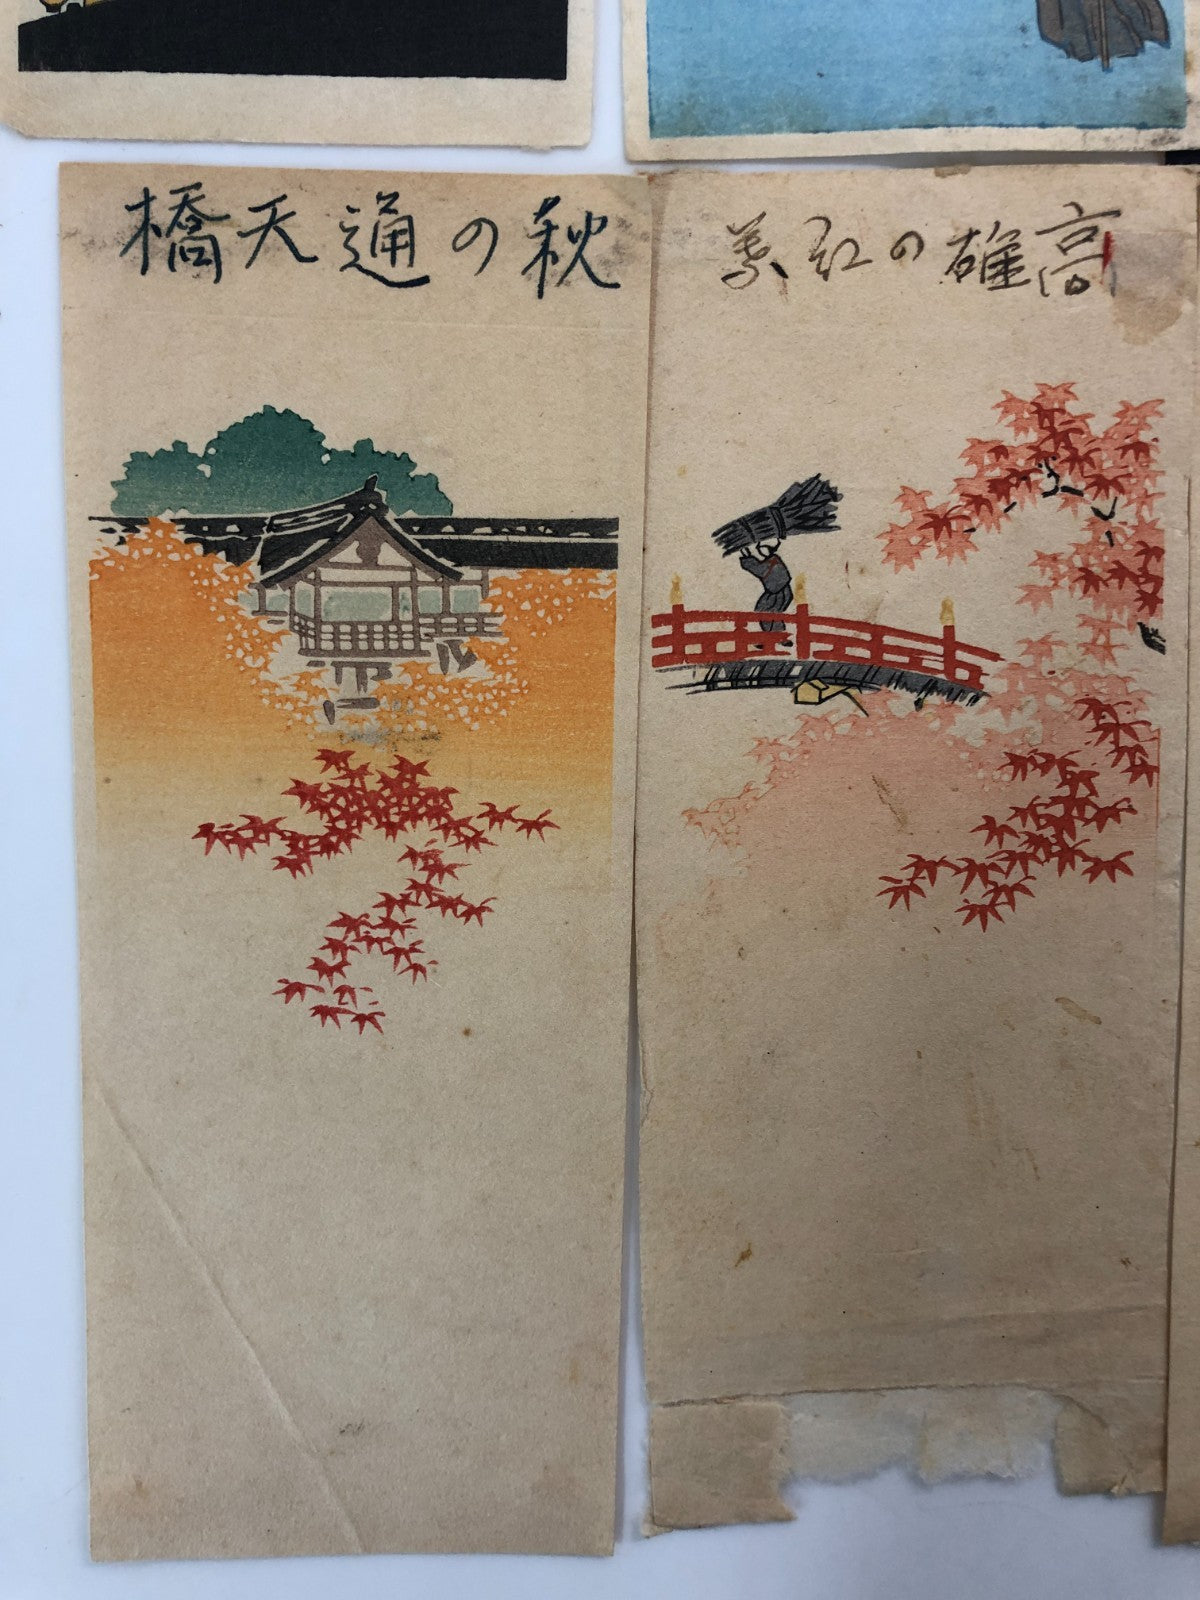 高雄の紅葉
秋の通天橋